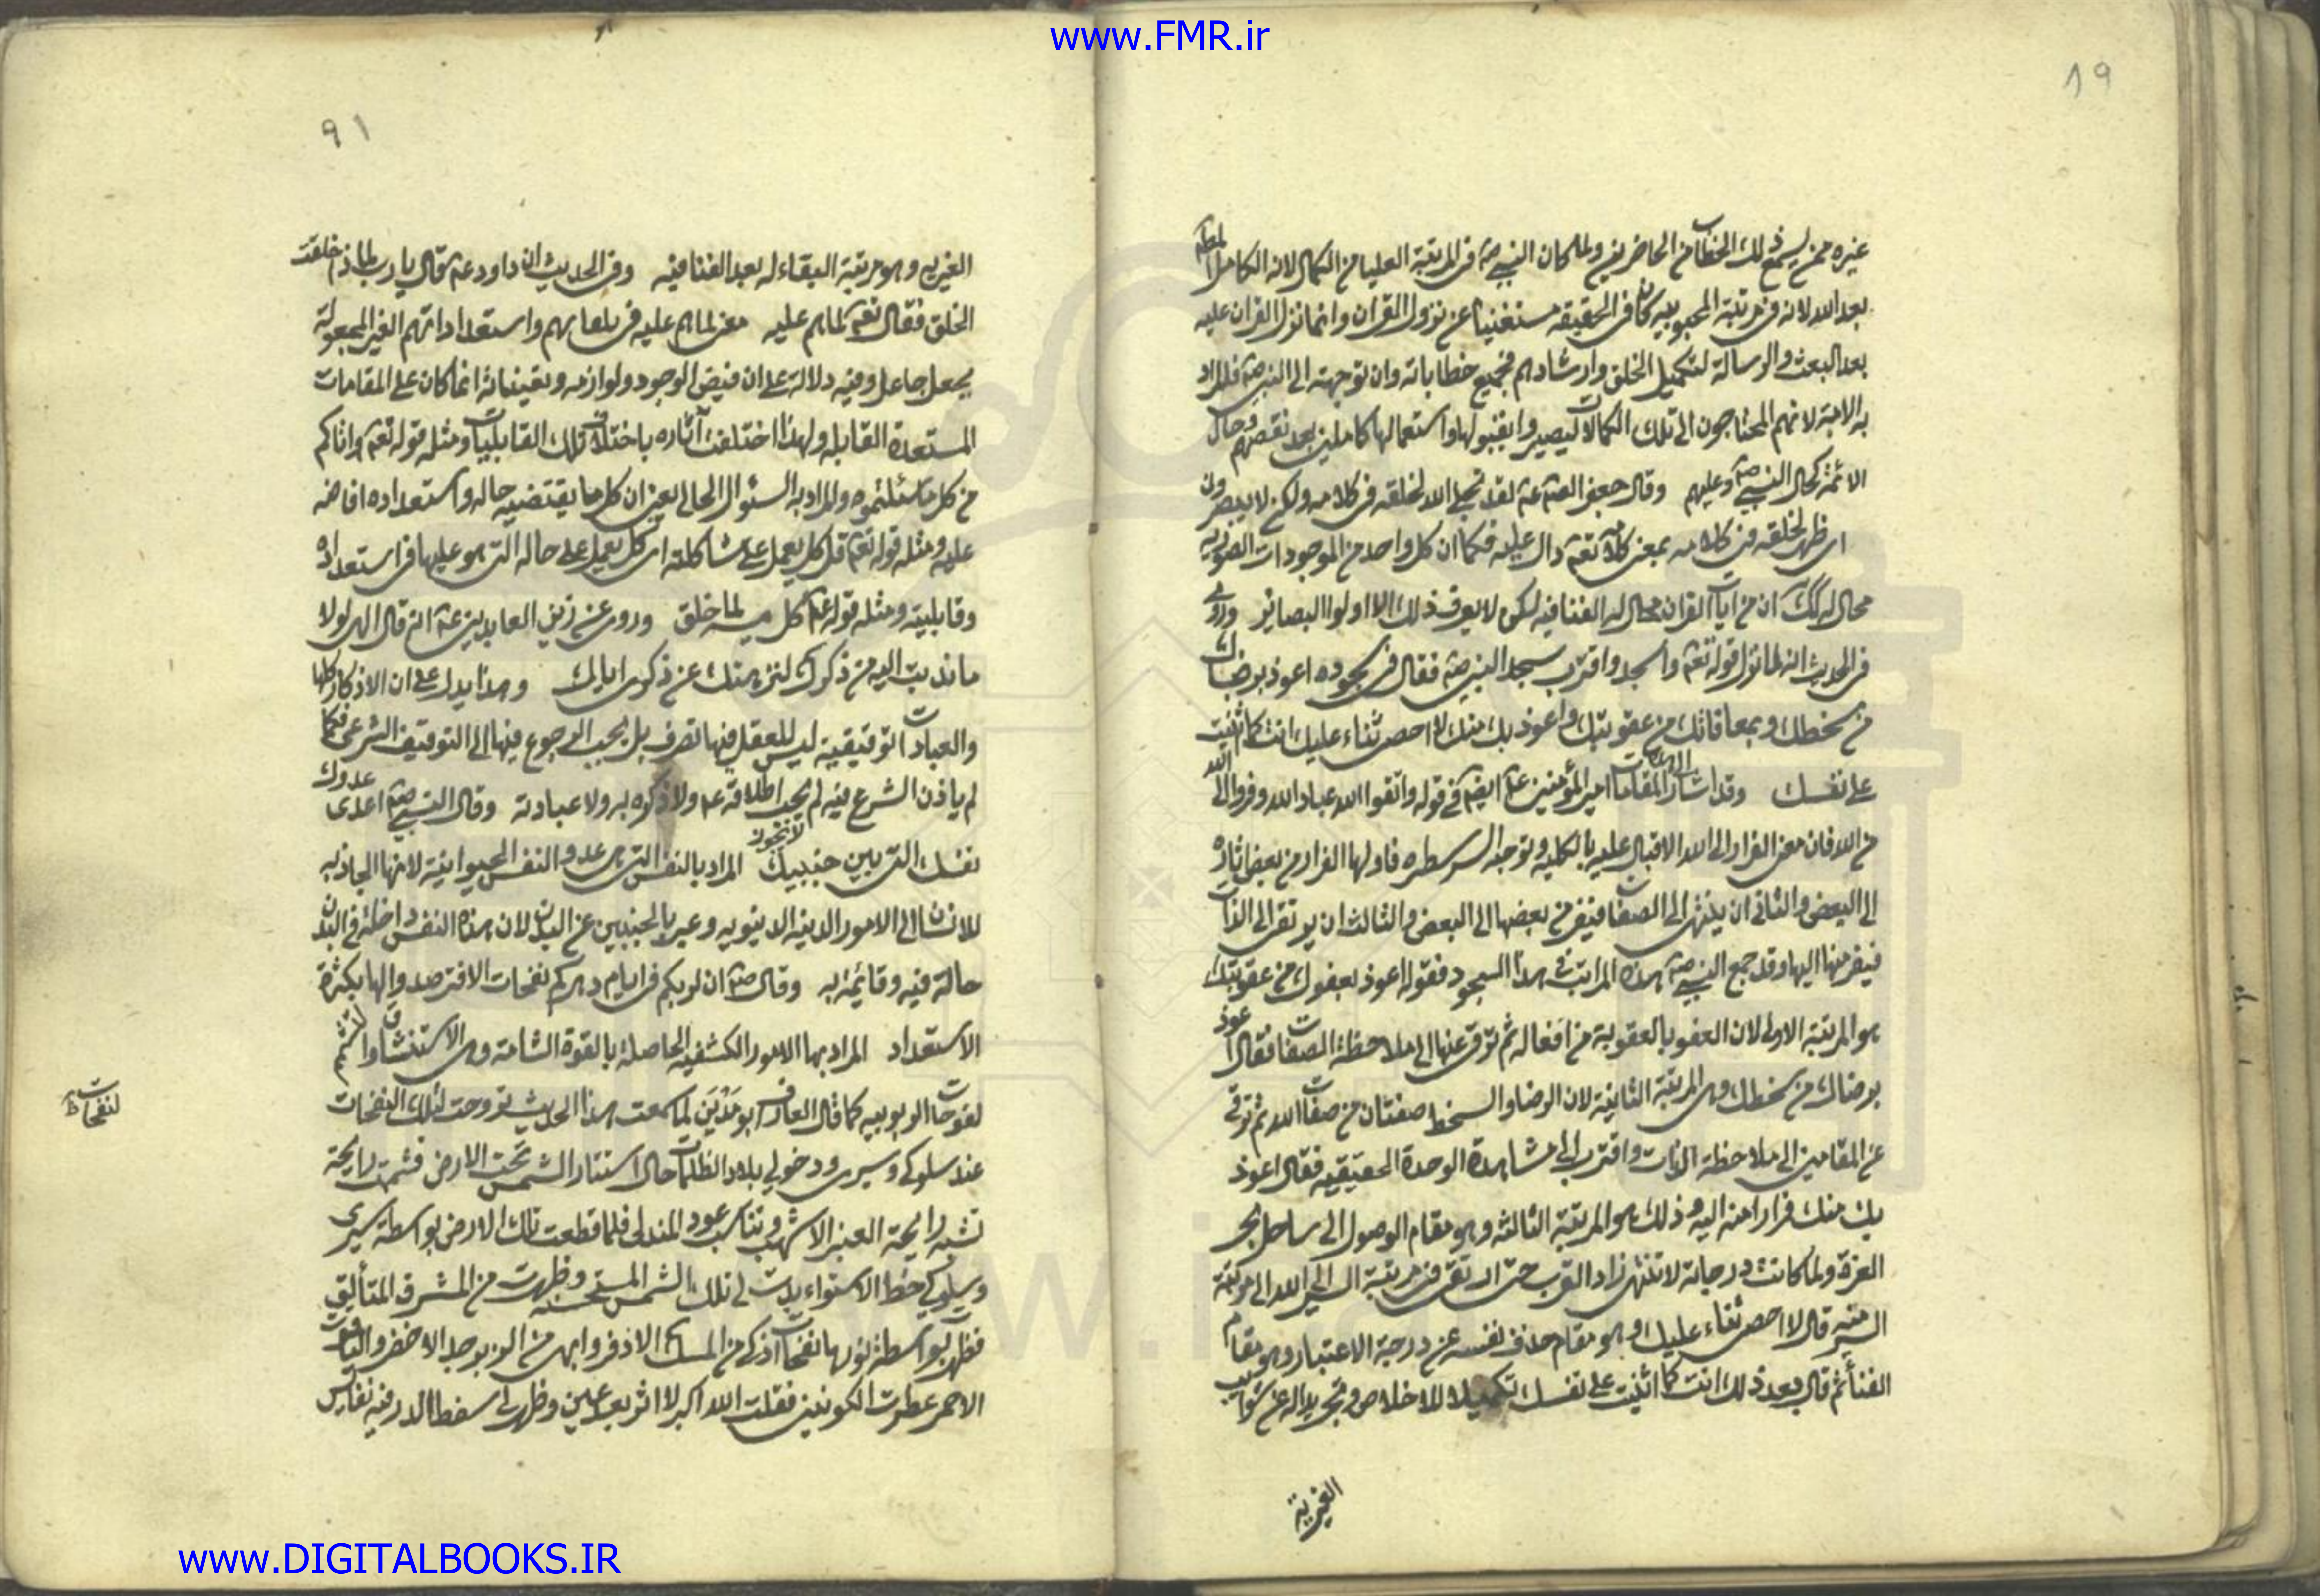 www.FMR.ir
١٩
غيره ممن يسمع ذلك الخطاب من الحاضرين ولما كان النبي صه في المرتبة العليا من الكمال لانه الكامل المطلق
بعد الله لانه في مرتبة المحبوبيه كان في الحقيقه مستغنيا عن نزول القران وانما نزل القران عليه
بعد البعث والرسالة لتكميل الخلق وارشادهم فجميع خطاباته وان توجهت الى النبي صه فالمراد
به الامة لانهم المحتاجون الى تلك الكمالات ليصيروا بقبولها واستعمالها كاملين بعد نقصهم وحال
الائمة كحال النبي صه وعليهم وقال جعفر الصه عه لقد تجلى الله لخلقه في كلامه ولكن لا يبصرون
اى ظهر لخلقه في كلامه بمعنى كلامه تعه دال عليه فكما ان كل واحد من الموجودات الصوريه
محال له كك ان من ايات القران محال له الفنا فيه لكن لا يعرف ذلك الا اولوا البصائر وروى
في الحديث انه لما نزل قوله تعه واسجد واقترب سجد النبي صه فقال في سجوده اعوذ برضاك
من سخطك وبمعافاتك من عقوبتك واعوذ بك منك لا احصى ثناء عليك انت كما اثنيت
على نفسك وقد اشار المقامات امير المؤمنين عه ايضه في قوله واتقوا الله عباد الله وفروا الى الله
من الله فان معنى الفرار الى الله الاقبال عليه بالكليه وتوجه السر شطره فاولها الفرار من بعض اثاره
الى البعض والثانى ان ينتهى الى الصفات فيفر من بعضها الى البعض والثالث ان يرتقى الى الذات
فيفر منها اليها وقد جمع النبي صه هذه المراتب في هذا السجود فقوله اعوذ بعفوك من عقوبتك
هو المرتبة الاولى لان العفو بالعقوبة من افعاله ثم ترقى عنها الى ملاحظة الصفات فقال اعوذ
برضاك من سخطك وهى المرتبة الثانية لان الرضا والسخط صفتان من صفات الله ثم ترقى
عن المقامين الى ملاحظة الذات واقترب الى مشاهدة الوحدة الحقيقيه فقال اعوذ
بك منك فرارا منه اليه وذلك هو المرتبة الثالثه وهو مقام الوصول الى ساحل بحر
العزة ولما كانت درجاته لا تنتهى زاد القرب حتى ارتقى من مرتبة السير الى الله الى مرتبة
السير منه قال لا احصى ثناء عليك وهو مقام حذف نفسه عن درجة الاعتبار وهو مقام
الفناء ثم قال بعد ذلك انت كما اثنيت على نفسك تكميلا للاخلاص وتجريدا له عن شوايب
الغيرية
٩١
الغيريه وهو مرتبة البقاء له بعد الفنا فيه وفي الحديث ان داود عه قال يا رب لماذا خلقت
الخلق فقال تعه لما هم عليه معنى لما هم عليه في واستعداداتهم الغير المجعولة
بجعل جاعل وفيه دلالة على ان فيض الوجود ولوازمه وتعيناته انما كان على المقامات
المستعدة القابله ولهذا اختلفت آثاره باختلاف تلك القابليات ومثله قوله تعه واتاكم
من كل ما سئلتموه والمراد به السئوال الحالى يعنى ان كل ما يقتضيه حاله واستعداده افاضه
عليه ومثله قوله تعه قل كل يعمل على شاكلته اى كل يعمل على حاله التى هو عليها في استعداده
وقابليته ومثله قوله عه كل ميسر لما خلق وروى عن زين العابدين عه انه قال الهى لولا
ما ندبت اليه من ذكرك لنزهتك عن ذكرى اياك وهذا يدل على ان الاذكار كلها
والعبادات توقيفية ليس للعقل فيها تصرف بل يجب الرجوع فيها الى التوقيف الشرعى فكما
لم ياذن الشرع فيه لم يجب اطلاقه عه ولا ذكره به ولا عبادته وقال النبي صه اعدى عدوك
نفسك التى بين جنبيك المراد بالنفس التى هى عدو النفس الحيوانية لانها الجاذبه
للانسان الى الامور الدنيه الدنيويه وعبر بالجنبين عن البدن لان هذه النفس داخلة في البدن
حالة فيه وقائمة به وقال صه ان لربكم في ايام دهركم نفحات الا فترصدوا لها بكثرة
الاستعداد المراد بها الامور الكشفيه الحاصلة بالقوة الشامة وهى الاستنشاق والتشمم
لفوحات الربوبيه كما قال العارف ابو مَدْيَن لما سمعت هذا الحديث تروحت لتلك النفحات
لنفحات ظ
عند سلوكى وسيرى ودخولى بلاد الظلمات حال استتار الشمس تحت الارض فشممت رايحة
تشبه رايحة العنبر الاشهب وتناسب عود المندلى فلما قطعت تلك الارض بواسطة سيرى
وسلوكى خط الاستواء بدت لى تلك الشمس وظهرت من المشرق المتأليق
فظهر بواسطة نورها نفحات اذكى من المسك الاذفر وابهى من الزبرجد الاخضر والياقوت
الاحمر عطرت الكونين فقلت الله اكبر لا اثر بعد عين وظهر لى سفط الدر فيه نفايس
www.DIGITALBOOKS.IR